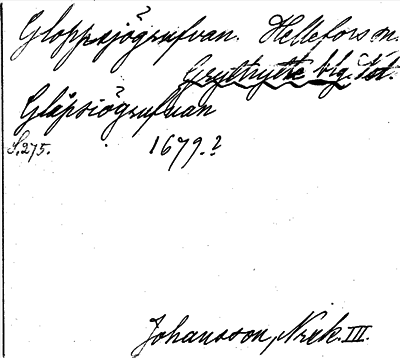 Gloppsjögrufvan. Hellefors sn.
Grythytte blg. Vst.
Glåpsiögrufwan
S. 275. 1679.?
Johansson, Nerk. III.